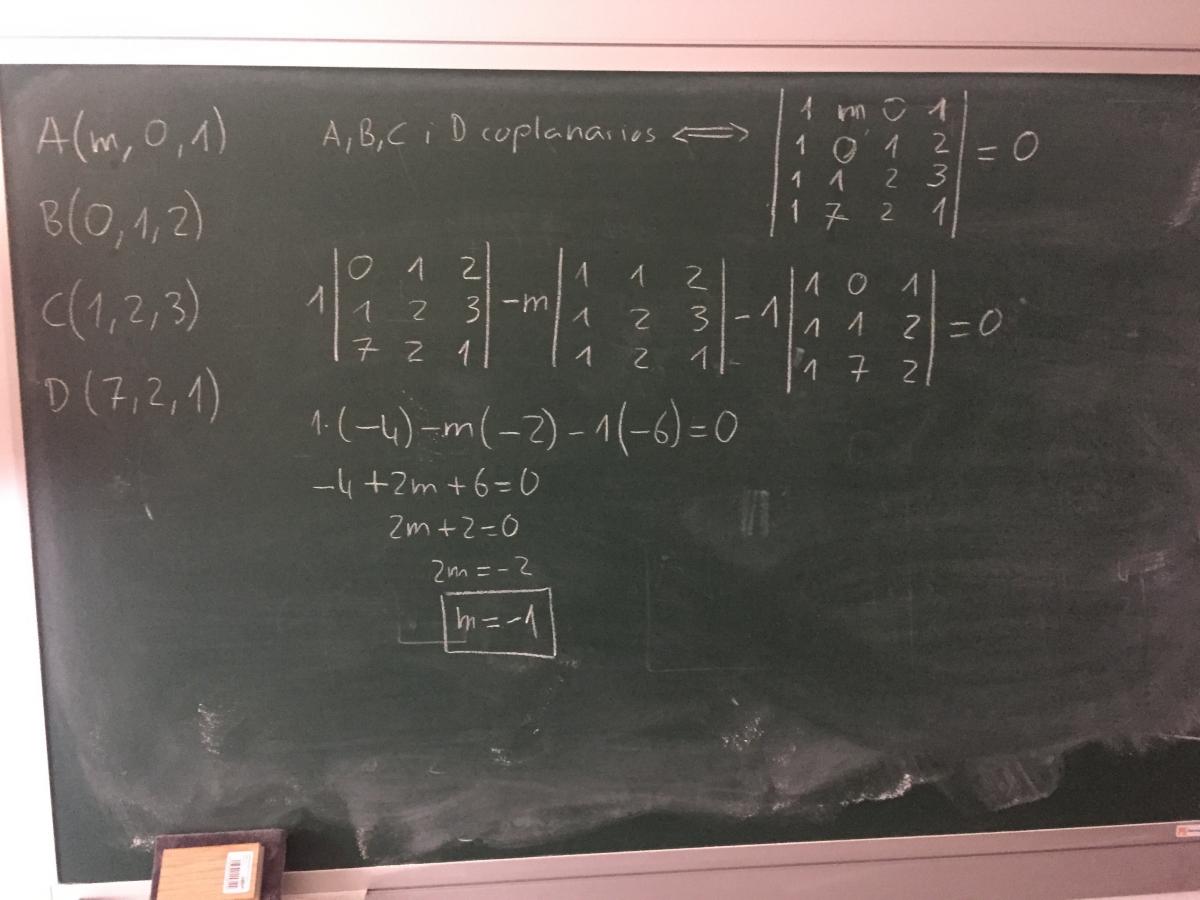 A(m,0,1)
B(0,1,2)
C(1,2,3)
D(7,2,1)
A,B,C i D coplanarios ⟺ | 1 m 0 1 | = 0
| 1 0 1 2 |
| 1 1 2 3 |
| 1 7 2 1 |
1 | 0 1 2 | -m | 1 1 2 | -1 | 1 0 1 | =0
| 1 2 3 | | 1 2 3 | | 1 1 2 |
| 7 2 1 | | 1 2 1 | | 1 7 2 |
1·(-4)-m(-2)-1(-6)=0
-4+2m+6=0
2m+2=0
2m=-2
m=-1